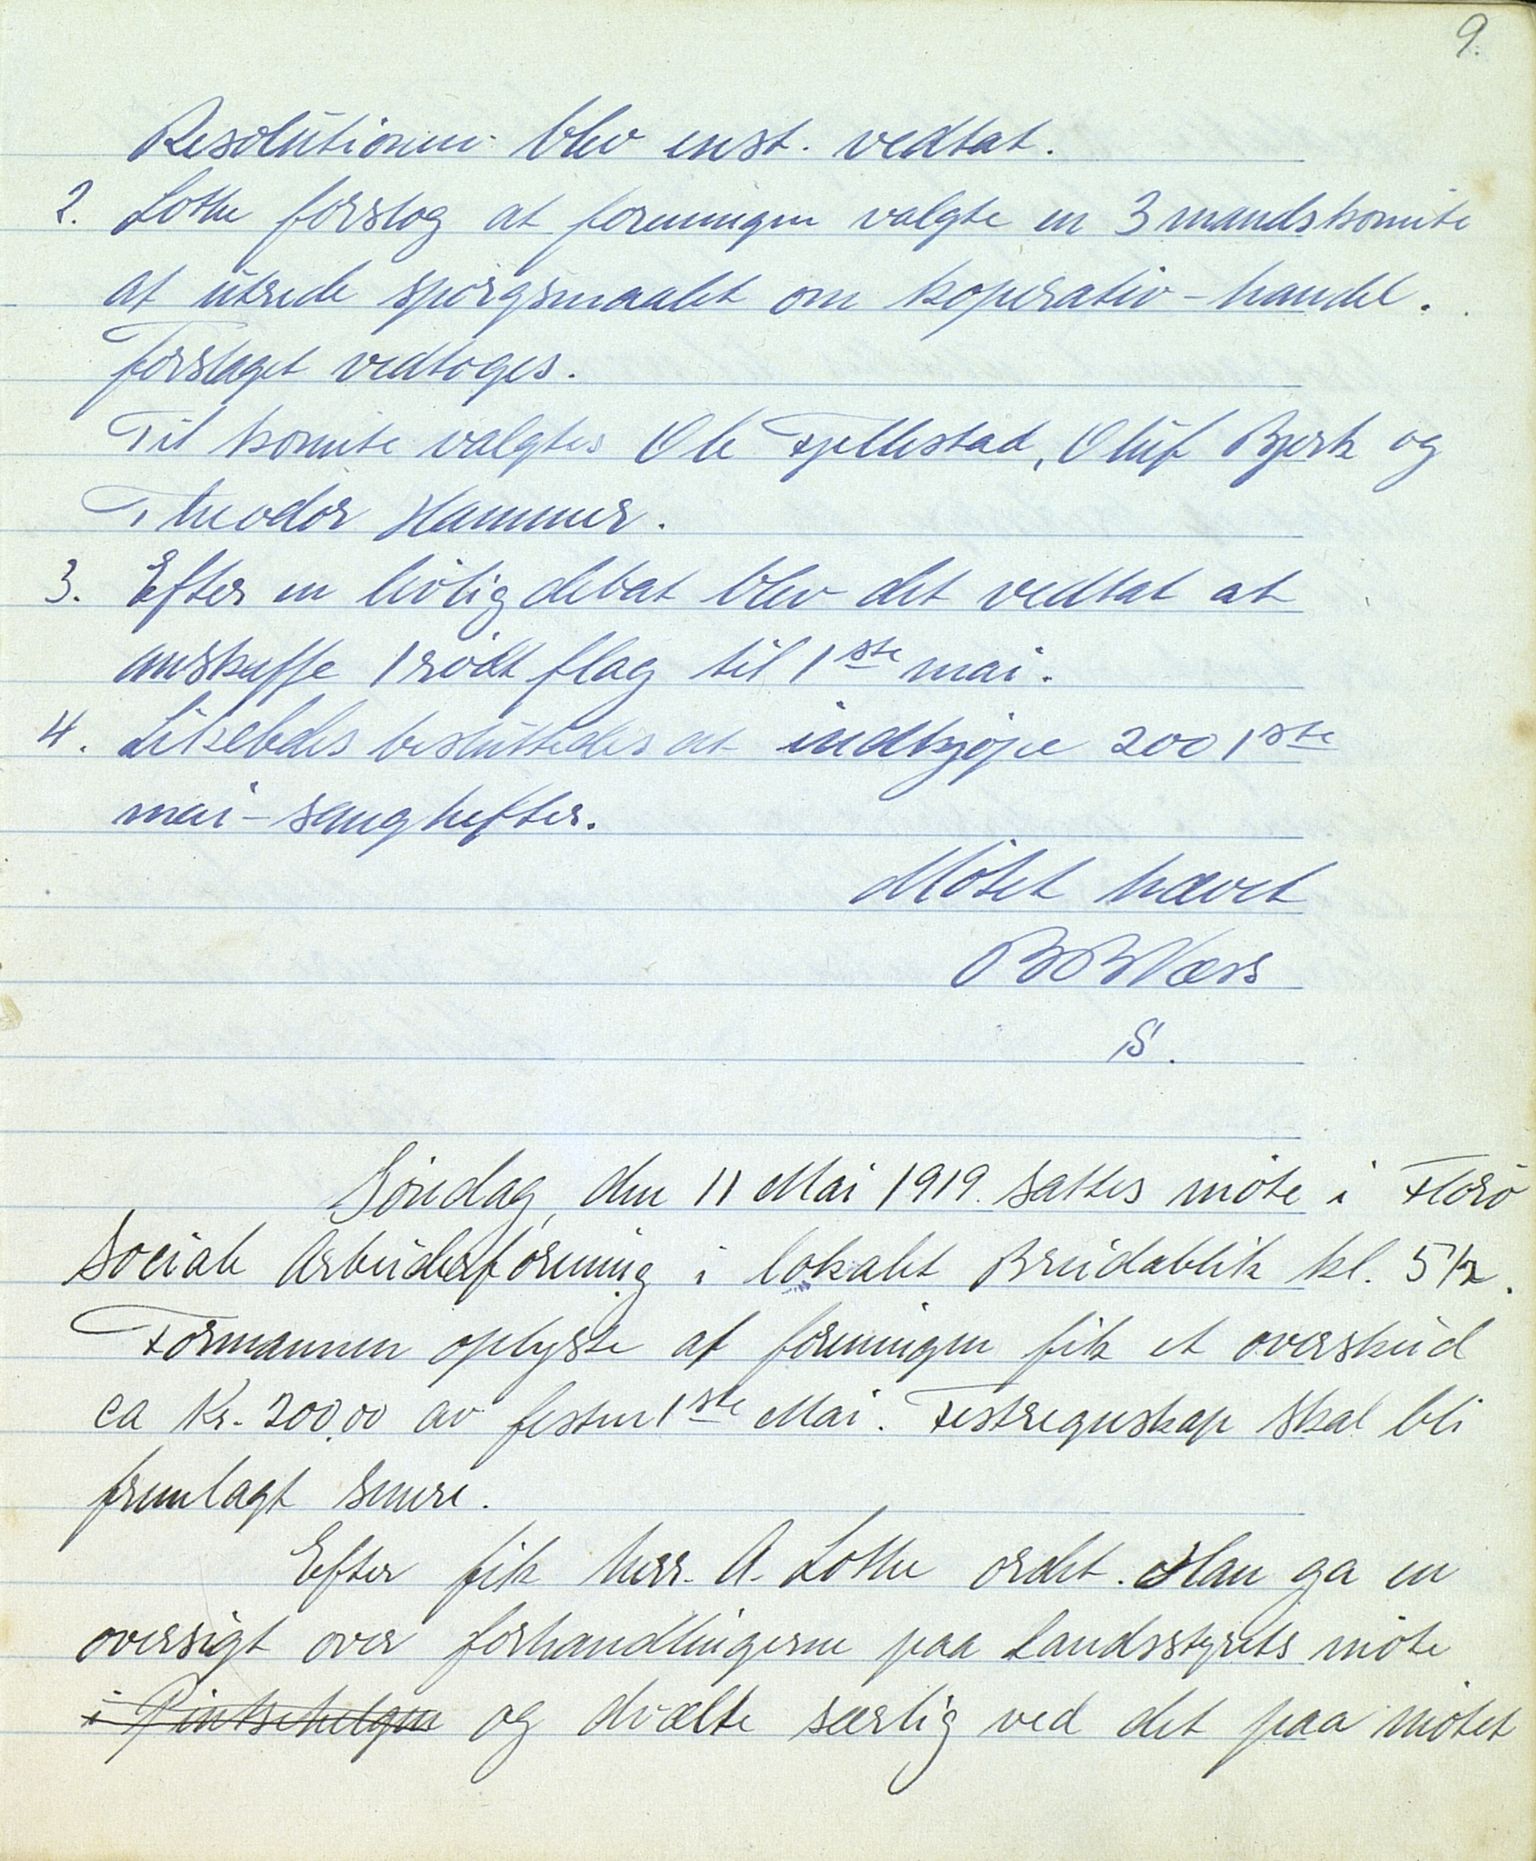 9.
Resolutionen blev enst. vedtat.
2. Lothe forslog at foreningen valgte en 3 mandskomite
at utrede spörgsmaalet om koperativ-handel.
Forslaget vedtoges.
Til komite valgtes Ole Fjellestad, Oluf Bjerk og
Theodor Hammer.
3. Efter en livlig debat blev det vedtat at
anskaffe 1 rödt flag til 1ste mai.
4. Likeledes besluttedes at indkjøpe 200 1ste
mai-sanghefter.
Mötet hævet
Næss
S.
Söndag, den 11 Mai 1919. sattes möte i Florö
Sociale Arbeiderforening i lokalet Breidablik kl. 5 1/2.
Formannen oplyste at foreningen fik et overskud
ca Kr. 200,00 av festen 1ste Mai. Festregnskap skal bli
fremlagt senere.
Efter fik herr. A. Lothe ordet. Han ga en
oversigt over forhandlingerne paa Landsstyrets möte
i Pintsehelgen og dvælte særlig ved det paa mötet